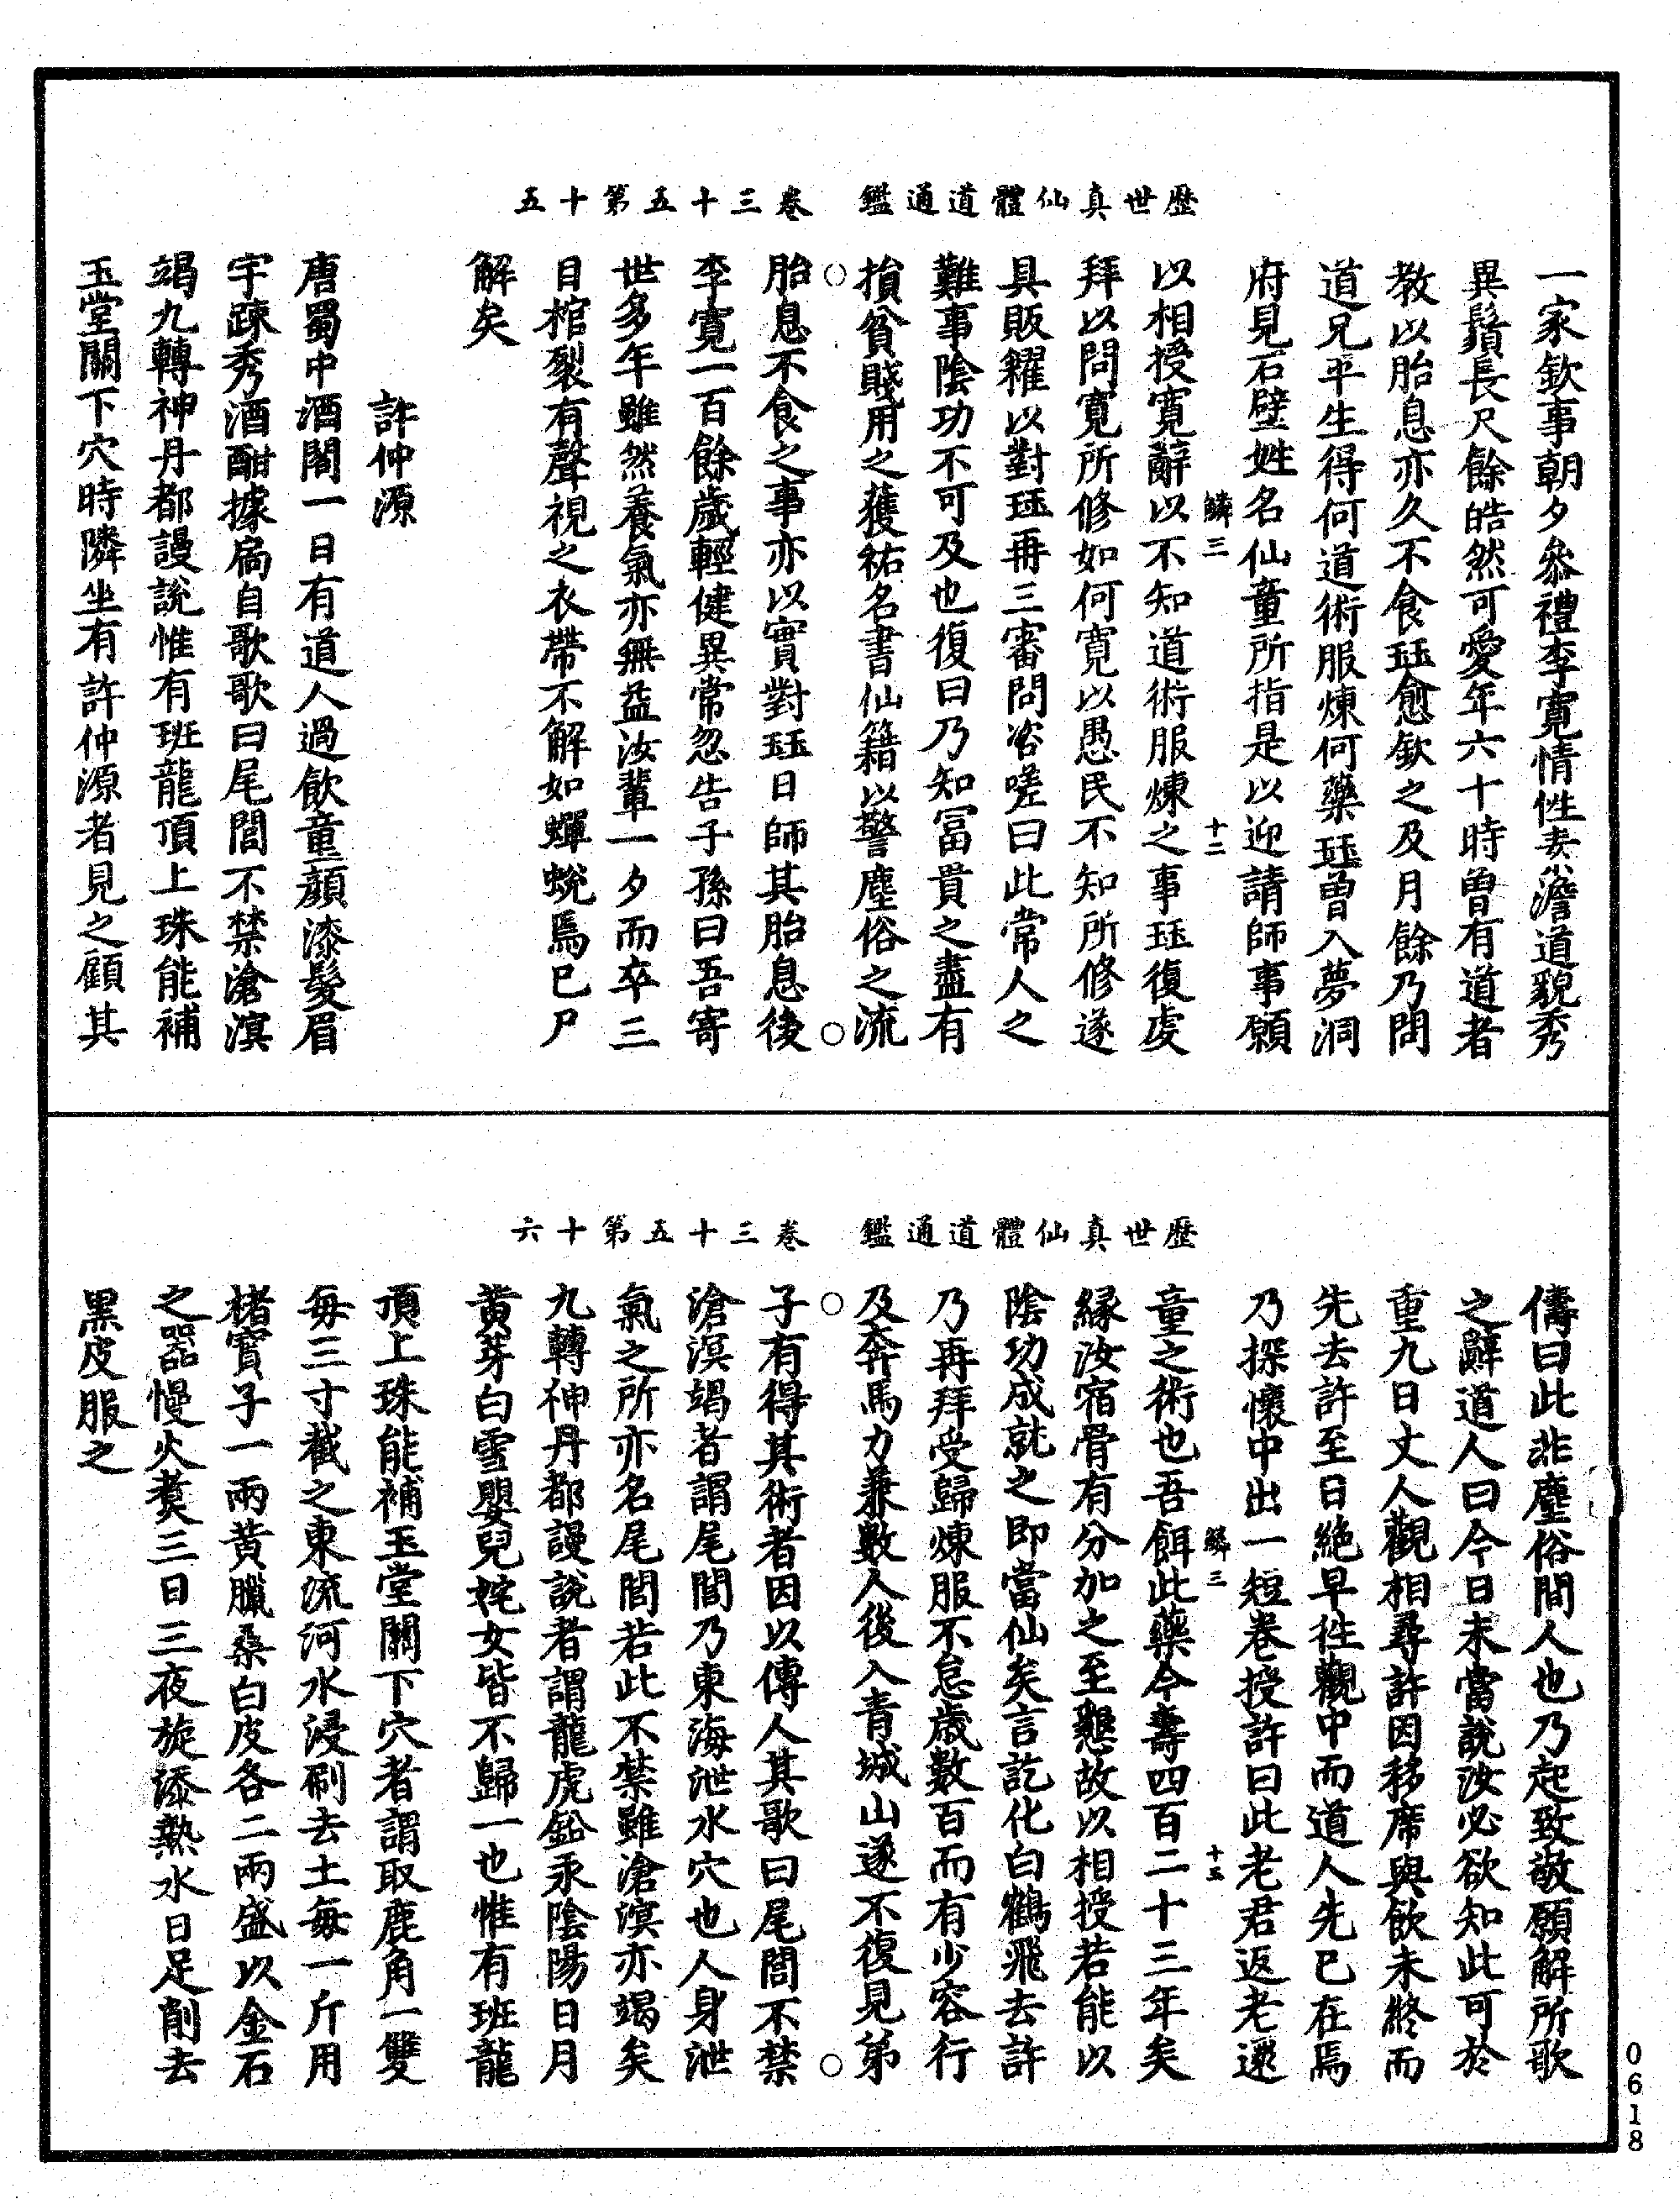 歷世真仙體道通鑑　卷三十五第十五
一家欽事朝夕叅禮李寬情性恭澹道貌秀
異鬚長尺餘皓然可愛年六十時曾有道者
教以胎息亦久不食珏愈欽之及月餘乃問
道兄平生得何道術服煉何藥珏曾入夢洞
府見石壁姓名仙童所指是以迎請師事願
鱗三　十二
以相授寬辭以不知道術服煉之事珏復虔
拜以問寬所修如何寬以愚民不知所修遂
具販糴以對珏再三審問咨嗟曰此常人之
難事陰功不可及也復曰乃知冨貴之盡有
損貧賤用之獲祐名書仙籍以警塵俗之流
胎息不食之事亦以實對珏日師其胎息後
李寬一百餘歲輕健異常忽告子孫曰吾寄
世多年雖然養氣亦無益汝輩一夕而卒三
日棺裂有聲視之衣帶不解如蟬蛻焉已尸
解矣
許仲源
唐蜀中酒閣一日有道人過飲童顏漆髮眉
宇踈秀酒酣據扃自歌歌曰尾閭不禁滄溟
竭九轉神丹都謾說惟有班龍頂上珠能補
玉堂關下穴時隣坐有許仲源者見之顧其
歷世真仙體道通鑑　卷三十五第十六
儔曰此非塵俗間人也乃起致敬願解所歌
之辭道人曰今日未當說汝必欲知此可於
重九日丈人觀相尋許因移席與飲未終而
先去許至日絶早往觀中而道人先已在焉
乃探懷中出一短卷授許曰此老君返老還
鱗三　十五
童之術也吾餌此藥今壽四百二十三年矣
緣汝宿骨有分加之至懇故以相授若能以
陰功成就之即當仙矣言訖化白鶴飛去許
乃再拜受歸煉服不怠歲數百而有少容行
及奔馬力兼數人後入青城山遂不復見弟
子有得其術者因以傳人其歌曰尾閭不禁
滄溟竭者謂尾閭乃東海泄水穴也人身泄
氣之所亦名尾閭若此不禁雖滄溟亦竭矣
九轉神丹都謾說者謂龍虎鉛汞陰陽日月
黃芽白雪嬰兒姹女皆不歸一也惟有班龍
頂上珠能補玉堂關下穴者謂取鹿角一雙
每三寸截之東流河水浸刷去土每一斤用
楮實子一兩黃臘桑白皮各二兩盛以金石
之器慢火煑三日三夜旋添熱水日足削去
黑皮服之
0618